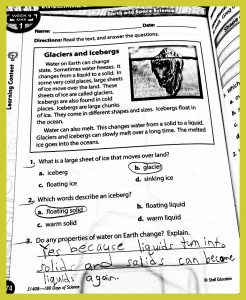 WEEK 9
DAY 1
Earth and Space Science
Name: Date:
Directions: Read the text, and answer the questions.
Learning Content
Glaciers and Icebergs
Water on Earth can change
state. Sometimes water freezes. It
changes from a liquid to a solid. In
some very cold places, large sheets
of ice move over the land. These
sheets of ice are called glaciers.
Icebergs are also found in cold
places. Icebergs are large chunks
of ice. They come in different shapes and sizes. Icebergs float in
the ocean.
Water can also melt. This changes from a solid to a liquid.
Glaciers and icebergs can slowly melt over a long time. The melted
ice goes into the oceans.
1. What is a large sheet of ice that moves over land?
a. iceberg b. glacier
c. floating ice d. sinking ice
2. Which words describe an iceberg?
a. floating solid b. floating liquid
c. warm solid d. warm liquid
3. Do any properties of water on Earth change? Explain.
Yes because liquids turn into
solids and solids can become
liquids again.
51408—180 Days of Science © Shell Education